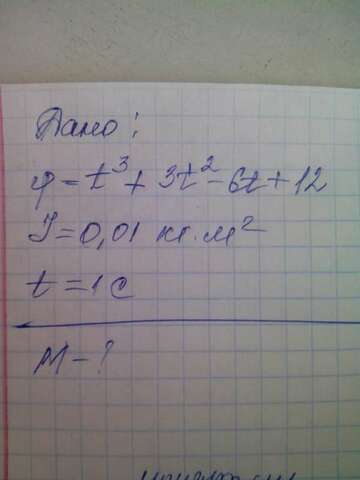 Дано:
φ = t³ + 3t² - 6t + 12
J = 0,01 кг · м²
t = 1 с
M - ?